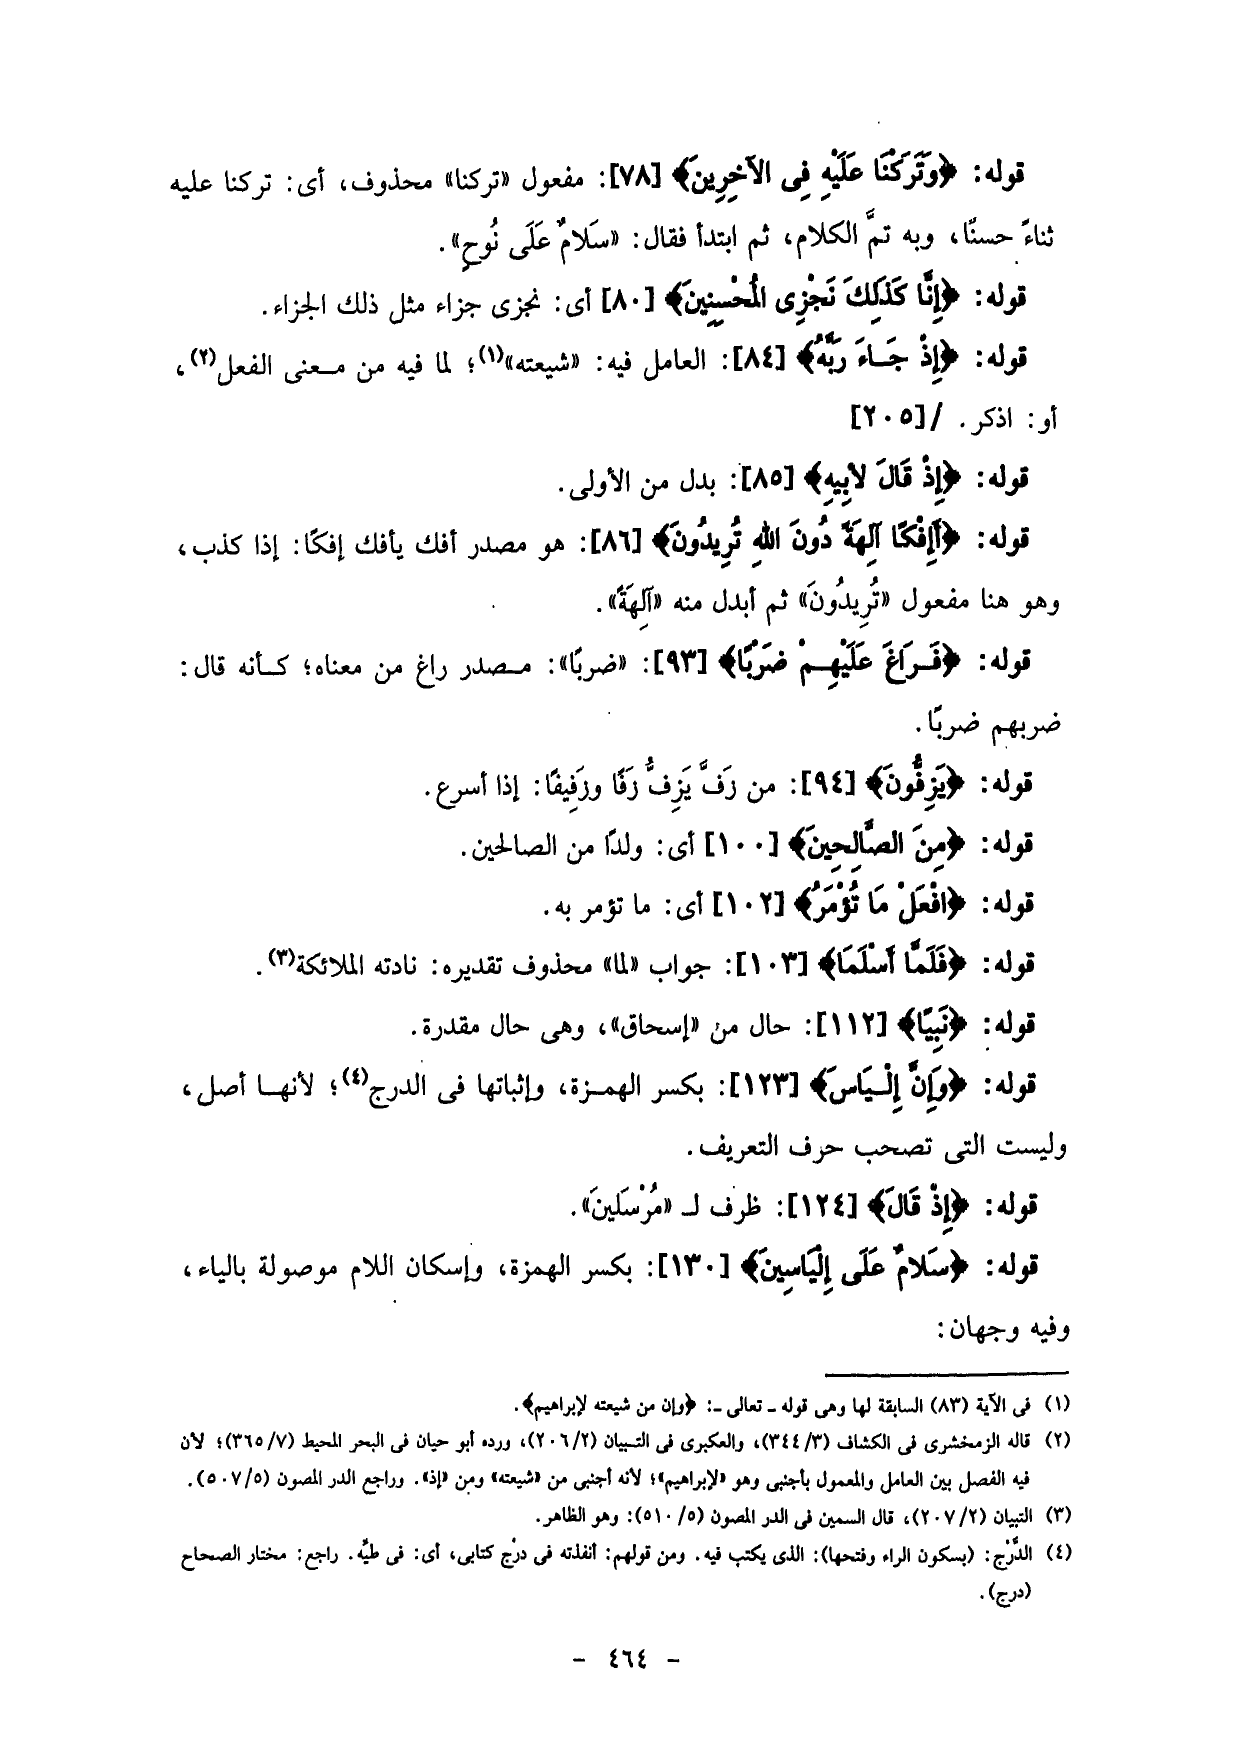 قوله: ﴿وَتَرَكْنَا عَلَيْهِ فِى الآخِرِينَ﴾ [٧٨]: مفعول «تركنا» محذوف، أى: تركنا عليه
ثناءً حسنًا، وبه تمَّ الكلام، ثم ابتدأ فقال: «سَلامٌ عَلَى نُوحٍ».
قوله: ﴿إِنَّا كَذَلِكَ نَجْزِى الْمُحْسِنِينَ﴾ [٨٠] أى: نجزى جزاء مثل ذلك الجزاء.
قوله: ﴿إِذْ جَاءَ رَبَّهُ﴾ [٨٤]: العامل فيه: «شيعته»(١)؛ لما فيه من معنى الفعل(٢)،
أو: اذكر. /[٢٠٥]
قوله: ﴿إِذْ قَالَ لأَبِيهِ﴾ [٨٥]: بدل من الأولى.
قوله: ﴿أَإِفْكًا آلِهَةً دُونَ اللهِ تُرِيدُونَ﴾ [٨٦]: هو مصدر أفك يأفك إفكًا: إذا كذب،
وهو هنا مفعول «تُرِيدُونَ» ثم أبدل منه «آلِهَةً».
قوله: ﴿فَرَاغَ عَلَيْهِمْ ضَرْبًا﴾ [٩٣]: «ضربًا»: مصدر راغ من معناه؛ كأنه قال:
ضربهم ضربًا.
قوله: ﴿يَزِفُّونَ﴾ [٩٤]: من زَفَّ يَزِفُّ زَفًا وزَفِيفًا: إذا أسرع.
قوله: ﴿مِنَ الصَّالِحِينَ﴾ [١٠٠] أى: ولدًا من الصالحين.
قوله: ﴿افْعَلْ مَا تُؤْمَرُ﴾ [١٠٢] أى: ما تؤمر به.
قوله: ﴿فَلَمَّا أَسْلَمَا﴾ [١٠٣]: جواب «لما» محذوف تقديره: نادته الملائكة(٣).
قوله: ﴿نَبِيًا﴾ [١١٢]: حال من «إسحاق»، وهى حال مقدرة.
قوله: ﴿وَإِنَّ إِلْيَاسَ﴾ [١٢٣]: بكسر الهمزة، وإثباتها فى الدرج(٤)؛ لأنها أصل،
وليست التى تصحب حرف التعريف.
قوله: ﴿إِذْ قَالَ﴾ [١٢٤]: ظرف لـ «مُرْسَلينَ».
قوله: ﴿سَلامٌ عَلَى إِلْيَاسِينَ﴾ [١٣٠]: بكسر الهمزة، وإسكان اللام موصولة بالياء،
وفيه وجهان:
(١) فى الآية (٨٣) السابقة لها وهى قوله ـ تعالى ـ: ﴿وإن من شيعته لإبراهيم﴾.
(٢) قاله الزمخشرى فى الكشاف (٣/ ٣٤٤)، والعكبرى فى التبيان (٢/ ٢٠٦)، ورده أبو حيان فى البحر المحيط (٧/ ٣٦٥)؛ لأن
فيه الفصل بين العامل والمعمول بأجنبى وهو «لإبراهيم»؛ لأنه أجنبى من «شيعته» ومن «إذ». وراجع الدر المصون (٥/ ٥٠٧).
(٣) التبيان (٢/ ٢٠٧)، قال السمين فى الدر المصون (٥/ ٥١٠): وهو الظاهر.
(٤) الدَّرْج: (بسكون الراء وفتحها): الذى يكتب فيه. ومن قولهم: أنفذته فى درْج كتابى، أى: فى طيِّه. راجع: مختار الصحاح
(درج).
- ٤٦٤ -